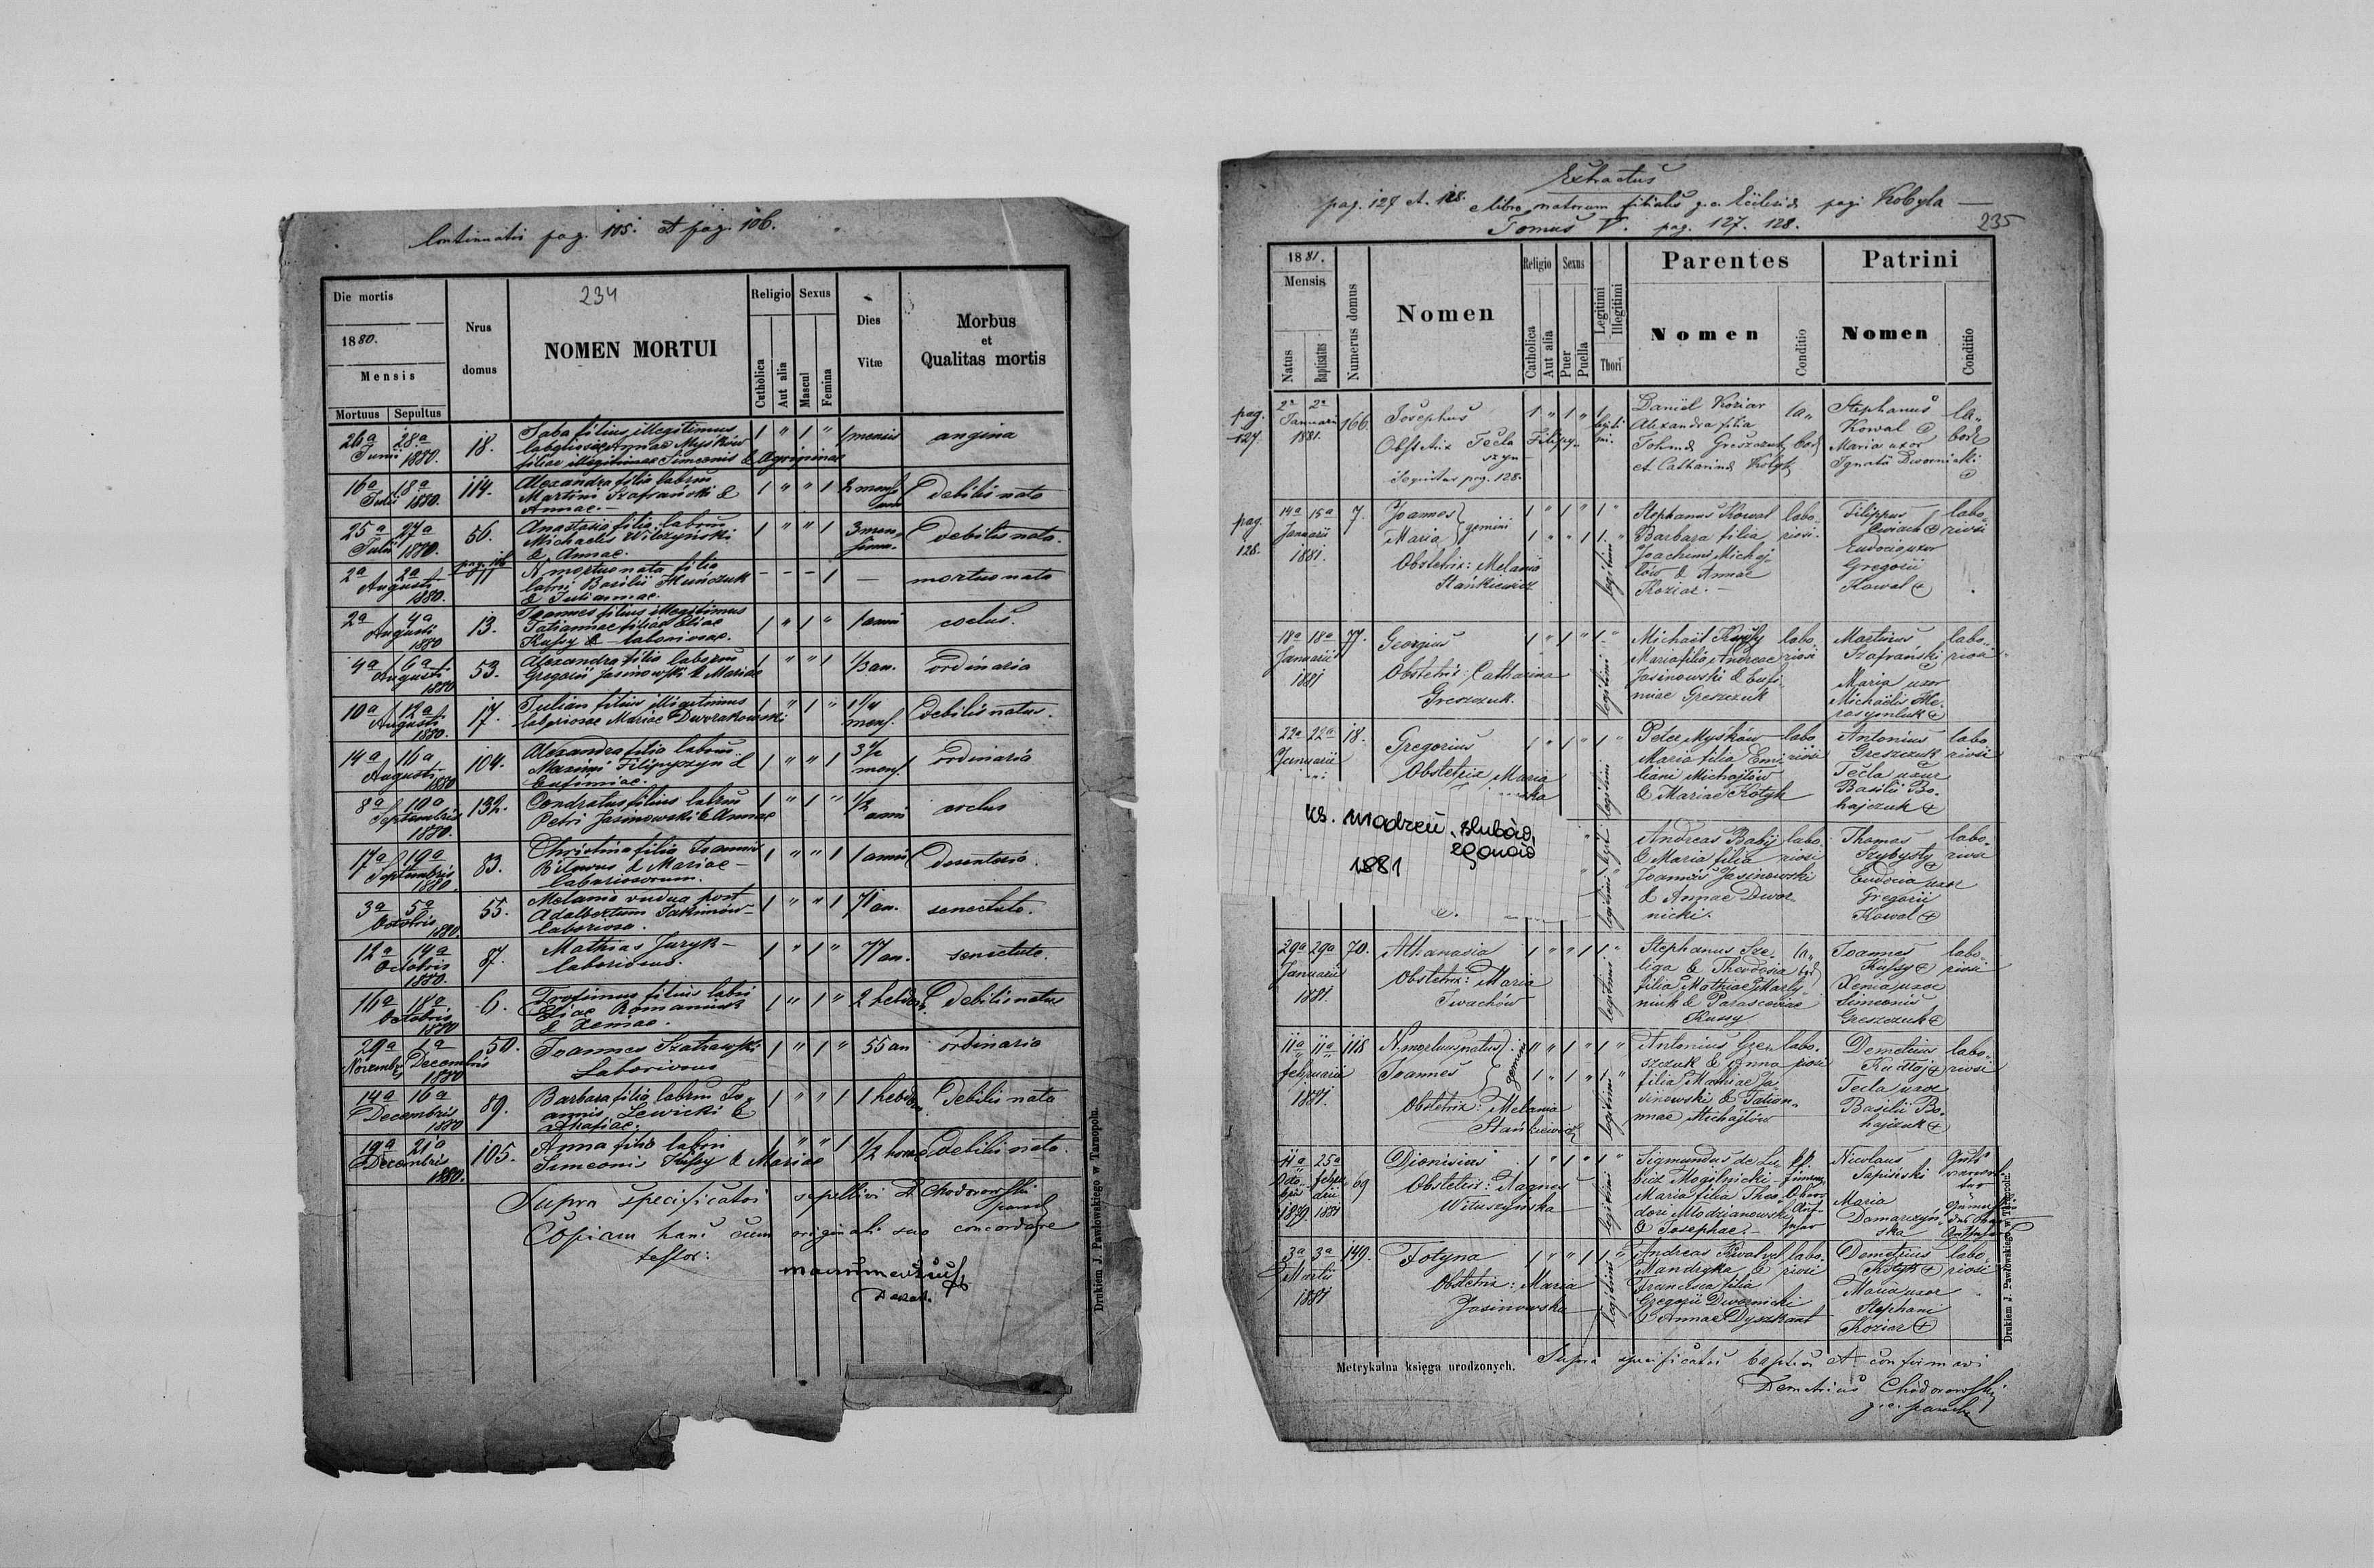 pag. 105. et pag. 106.
234
Die mortis
1880.
Mensis
Mortuus Sepultus
Nrus domus
NOMEN MORTUI
Religio Sexus
Catholica
Aut alia
Mascul
Femina
Dies Vitæ
Morbus et Qualitas mortis
26a 28a
Junii 1880.
18.
filius illegitimus
1 " 1 "
1 mensis
angina
16a 18a
Julii 1880.
114.
Alexandra filia labrum
Martini Szafrański &
Annae.
1 " " 1
debilis nata
25a 27a
Julii 1880.
56.
Anastasia filia labrum
Michaelis Wilczyński
& Annae.
1 " " 1
debilis nata.
2a 2a
Augusti
1880.
pag. 106
11
N mortuo nata filia
labri Basilii
& Juliannae.
- - - 1
—
mortuo nata
2a 4a
Augusti
1880
13.
Joannes filius illegitimus
Tatiannae filiae Eliae
Kussy & laboriosae.
1 " 1 "
1 anni
coctus.
4a 6a
Augusti
1880
53.
Alexandra filia laborum
Gregorii Jasinowski & Mariae
1 " " 1
1/3 an.
ordinaria
10a 12a
Augusti
1880.
17.
Julian filius illegitimus
laboriosae Mariae Dworakowski
1 " 1 "
1 1/4
mens.
debilis natus.
14a 16a
Augusti
1880
104.
Alexandra filia labrum
Maximi Filipyszyn &
Eufimiae.
1 " " 1
3 1/2
mens.
ordinaria
8a 10a
Septembris
1880.
132.
Condratus filius labrum
Petri Jasinowski & Annae
1 " 1 "
1/2
anni
coctus
17a 19a
Septembris
1880.
83.
Christina filia Joannis
& Mariae
laboriosorum.
1 " " 1
1 anni
3a 5a
Octobris
1880.
55.
Melania vidua post
Adalbertum Jakimów
laboriosa.
1 " " 1
71 an.
senectute.
12a 14a
Octobris
1880.
87.
Mathias Juryk
laboriosus.
1 " 1 "
77 an.
senectute.
16a 18a
Octobris
1880
6.
Trofimus filius labri
Eliae Romaniuk
& Xeniae.
1 " 1 "
2 hebdom.
debilis natus
29a 1a
Novembris Decembris
1880
50.
Joannes Szatrawski
Laboriosus
1 " 1 "
55 an
ordinaria
14a 16a
Decembris
1880
89.
Barbara filia labrum Jo-
annis Lewicki &
1 " " 1
1 hebdom.
debilis nata
19a 21a
Decembris
1880.
105.
Anna filia labori
Simeonis Kussy & Mariae
1 " " 1
1/2 horae
debilis nata.
Supra specificatos sepellivi D Chodorowski
paroch
Copiam hanc cum originali suo concordare
testor:
Drukiem J. Pawłowskiego w Tarnopolu.
Extractus
pag. 127 et. 128. e libro natorum filialis g. c. Ecclesiae pagi Kobyla
Tomus V. pag. 127. 128.
235
1881.
Mensis
Natus
Baptisatus
Numerus domus
Nomen
Religio
Catholica
Aut alia
Sexus
Puer
Puella
Legitimi
Illegitimi
Thori
Parentes
Nomen
Conditio
Patrini
Nomen
Conditio
pag.
127.
2a 2a
Januarii
1881.
166.
Josephus
Obstetrix Tecla Filipy-
szyn
Sequitur pag. 128.
1 " 1 " 1
legiti
mi.
Daniel Koziar
Alexandra filia
Greszczuk
et Catharinae Kotyk
la"
bor
Stephanus
Kowal
Maria uxor
Ignatii Dwornicki
la"
bor
pag.
128.
14a 15a
Januarii
1881.
7.
Joannes
Maria
gemini
Obstetrix: Melania
Stańkiewicz
legitimi
Stephanus Kowal
Barbara filia
Joachimi Michaj-
łów & Annae
Koziar.
labo-
riosi.
Filippus
Eudocia uxor
Gregorii
Kowal
labo-
riosi
18a 18a
Januarii
1881
77.
Georgius
Obstetrix: Catharina
Greszczuk.
legitimi
Michael Kussy
Maria filia Andreae
Jasinowski & Eufi-
miae Greszczuk
labo
riosi
Martinus
Szafrański
Maria uxor
Michaelis He-
rasymluk
labo-
riosi
22a 22a
Januarii
18.
Gregorius
Obstetrix Maria
legitimi
Peter Myśków
Maria filia Emi
liani Michajłów
& Mariae Kotyk
labo
riosi
Antonius
Greszczuk
Tecla uxor
Basilii Bo-
hajczuk
labo
riosi
ks. urodzeń, ślubów,
zgonów
1881
Andreas Babij
& Maria filia
Joannis Jasinowski
& Annae Dwor-
nicki.
labo
riosi
Thomas
Szybysty
Eudocia uxor
Gregorii
Kowal
labo-
riosi
29a 29a
Januarii
1881.
70.
Athanasia
Obstetrix: Maria
Iwachów
1 " " 1 1 "
legitimi
Stephanus Sze-
liga & Theodosia
filia Mathiae Marty-
niuk & Parasceviae
Kussy
Joannes
Kussy
Xenia uxor
Simeonis
Greszczuk
labo
riosi
11a 11a
februarii
1881.
118
N. mortuus natus
Joannes
gemini
Obstetrix: Melania
Stańkiewicz
legitimi
Antonius Gre-
szczuk & Anna
filia Mathiae Ja-
sinowski & Tatian-
nae Michajłów
labo-
riosi
Demetrius
Kudłaj
Tecla uxor
Basilii Bo-
hajczuk
labo-
riosi
11a 25a
Octo- febru-
bris arii
1879 1881
69
Dionisius
Obstetrix: Agnes
Wituszyńska
legitimi
Sigmundus de Lu-
bicz Mogilnicki
Maria filia Theo-
dori Młodzianowski
& Josephae.
Nicolaus
Sapiński
Maria
Damarczyń-
ska
3a 3a
Martii
1881
149.
Fotyna
Obstetrix: Maria
Jasinowska
1 " " 1 1 "
legitimi
Andreas Kowal vel
Mandryka &
Francisca filia
Gregorii Dwornicki
& Annae Dyszkant
labo.
riosi
Demetrius
Kotyk
Maria uxor
Stephani
Koziar
labo.
riosi
Metrykalna księga urodzonych.
Supra specificatos baptisavi et confirmavi
Demetrius Chodorowski
g. c. paroch
Drukiem J. Pawłowskiego w Tarnopolu.